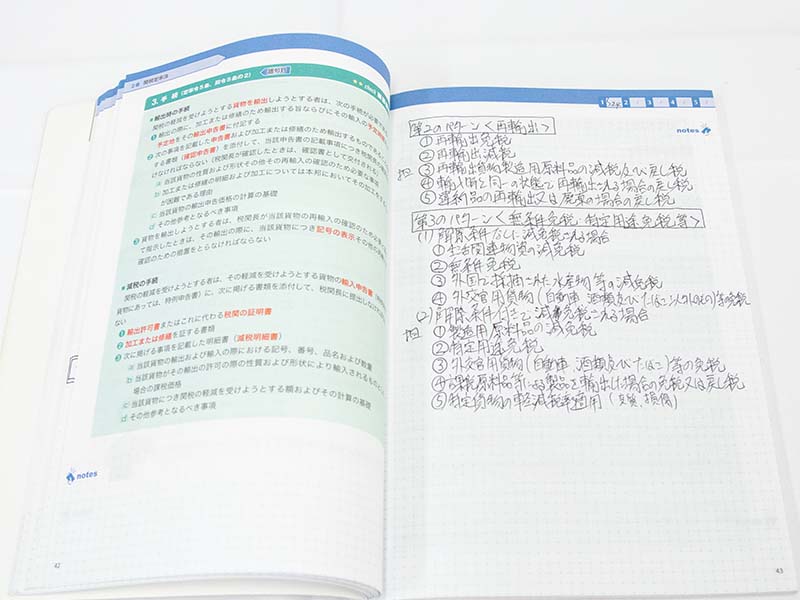 2章 関税定率法
3. 手 続（定率法11条、同令5条の2）
語句 択一
★★ check
■ 輸出時の手続
関税の軽減を受けようとする貨物を輸出しようとする者は、次の手続が必要
① 輸出の際に、加工または修繕のため輸出する旨ならびにその輸入の予定時期
予定地をその輸出申告書に付記する
② 次の事項を記載した申告書および加工または修繕のため輸出するものであること
する書類（確認申告書）を添付して、当該申告書の記載事項につき税関長の確認
けなければならない（税関長が確認したときは、確認書として交付される）
ⓐ 当該貨物の性質および形状その他その再輸入の確認のため必要な事項
ⓑ 加工または修繕の明細および加工については本邦においてその加工をする
が困難である理由
ⓒ 当該貨物の輸出申告価格の計算の基礎
ⓓ その他参考となるべき事項
③ 貨物を輸出しようとする者は、税関長が当該貨物の再輸入の確認のため必要
て指示したときは、その輸出の際に、当該貨物につき記号の表示その他の
確認のための措置をとらなければならない
■ 減税の手続
関税の軽減を受けようとする者は、その軽減を受けようとする貨物の輸入申告書（
貨物にあっては、特例申告書）に、次に掲げる書類を添付して、税関長に提出しなければ
ない
① 輸出許可書またはこれに代わる税関の証明書
② 加工または修繕を証する書類
③ 次に掲げる事項を記載した明細書（減税明細書）
ⓐ 当該貨物の輸出および輸入の際における記号、番号、品名および数量
ⓑ 当該貨物がその輸出の許可の際の性質および形状により輸入されるものとした
場合の課税価格
ⓒ 当該貨物につき関税の軽減を受けようとする額およびその計算の基礎
ⓓ その他参考となるべき事項
notes
42
1 2 / 3 / 4 / 5 /
notes
第2のパターン＜再輸出＞
① 再輸出免税
② 再輸出減税
担 ③ 再輸出貨物製造用原料品の減税及び戻し税
④ 輸入時と同一の状態で再輸出される場合の戻し税
⑤ 違約品の再輸出又は廃棄の場合の戻し税
第3のパターン＜無条件免税・特定用途免税等＞
(1) 解除条件なしに減免税される場合
① 生活関連物資の減免税
② 無条件免税
③ 外国で採捕された水産物等の減免税
④ 外交官用貨物(自動車、酒類及びたばこ以外のもの)等免税
(2) 解除条件付きで減免税される場合
担 ① 製造用原料品の減免税
② 特定用途免税
③ 外交官用貨物(自動車、酒類及びたばこ)等の免税
④ 課税原料品等による製品を輸出した場合の免税又は戻し税
⑤ 特定貨物の軽減税率適用（変質、損傷）
43